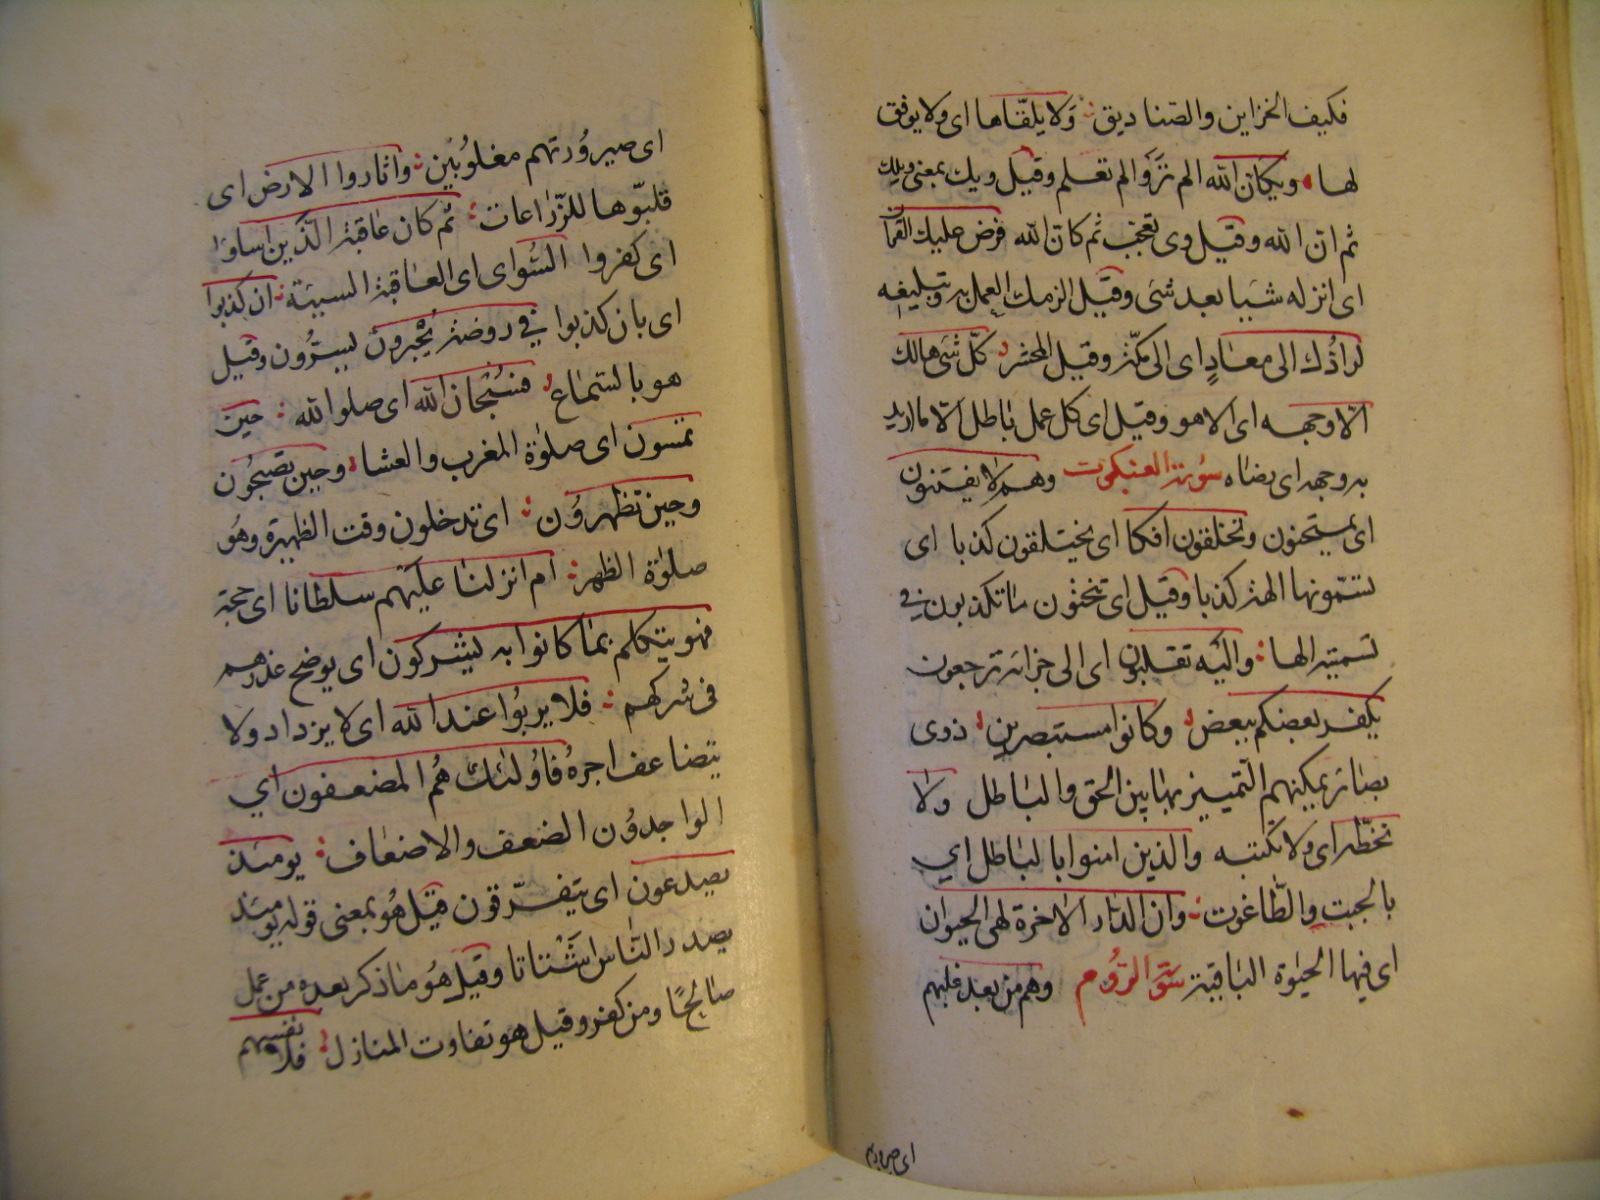 فكيف الخزاين والصناديق ولا يلقّاها اى ولا يوفق
لها ويكان الله الم تَرَوا الم تعلم وقيل ويك بمعنى ويلك
ثم ان الله وقيل وى تعجب ثم كان الله فرض عليك القرآن
اى انزله شيبا بعد شى وقيل الزمك العمل به وتبليغه
لرادّك الى معادٍ اى الى مكة وقيل المحشر كلّ شى هالك
الّا وجهه اى الا هو وقيل اى كل عمل باطل الّا ما اريد
به وجهه اى رضاه سورة العنكبوت وهم لا يفتنون
اى يمتحنون وتخلقون افكا اى تختلقون كذبا اى
تسمّونها الهة كذبا وقيل اى تنحتون ما تكذبون فى
تسميته الها واليه تقلبون اى الى جزائه ترجعون
يكفر بعضكم ببعض وكانوا مستبصرين ذوى
بصائر يمكنهم التمييز بها بين الحق والباطل ولا
تخطّه اى ولا تكتبه والذين امنوا بالباطل اي
بالجبت والطّاغوت وان الدار الاخرة لهى الحيوان
اى فيها الحيوة الباقية سورة الرّوم وهم من بعد غلبهم
اى صيرورتهم
اى صيرورتهم مغلوبين واثاروا الارض اى
قلبّوها للزّراعات ثم كان عاقبة الّذين اساوا
اى كفروا السُّواى اى العاقبة السيئة ان كذبوا
اى بان كذبوا فى روضة يُحْبرون يسرُّون وقيل
هو بالستماع فسُبْحان الله اى صلوا لله حين
تمسون اى صلوة المغرب والعشا وحين تصبحُون
وحين تظهرُون اى تدخلون وقت الظهيرة وهُو
صلوة الظهر ام انزلنا عليهم سلطانا اى حجة
فهو يتكلم بما كانوا به يشركون اى يوضح عذرهم
فى شركهم فلا يربُوا عند الله اى لا يزداد ولا
يتضاعف اجرهُ فاوُلئك هُم المضعفون اي
الواجدوُن الضعف والاضعاف يومئذ
يصدعون اى يتفرّقون قيل هُو بمعنى قوله يومئذ
يصدر النّاس اشْتاتا وقيل هُو ما ذكر بعده من عمل
صالحًا ومن كفر وقيل هو تفاوت المنازل فلانفسهم